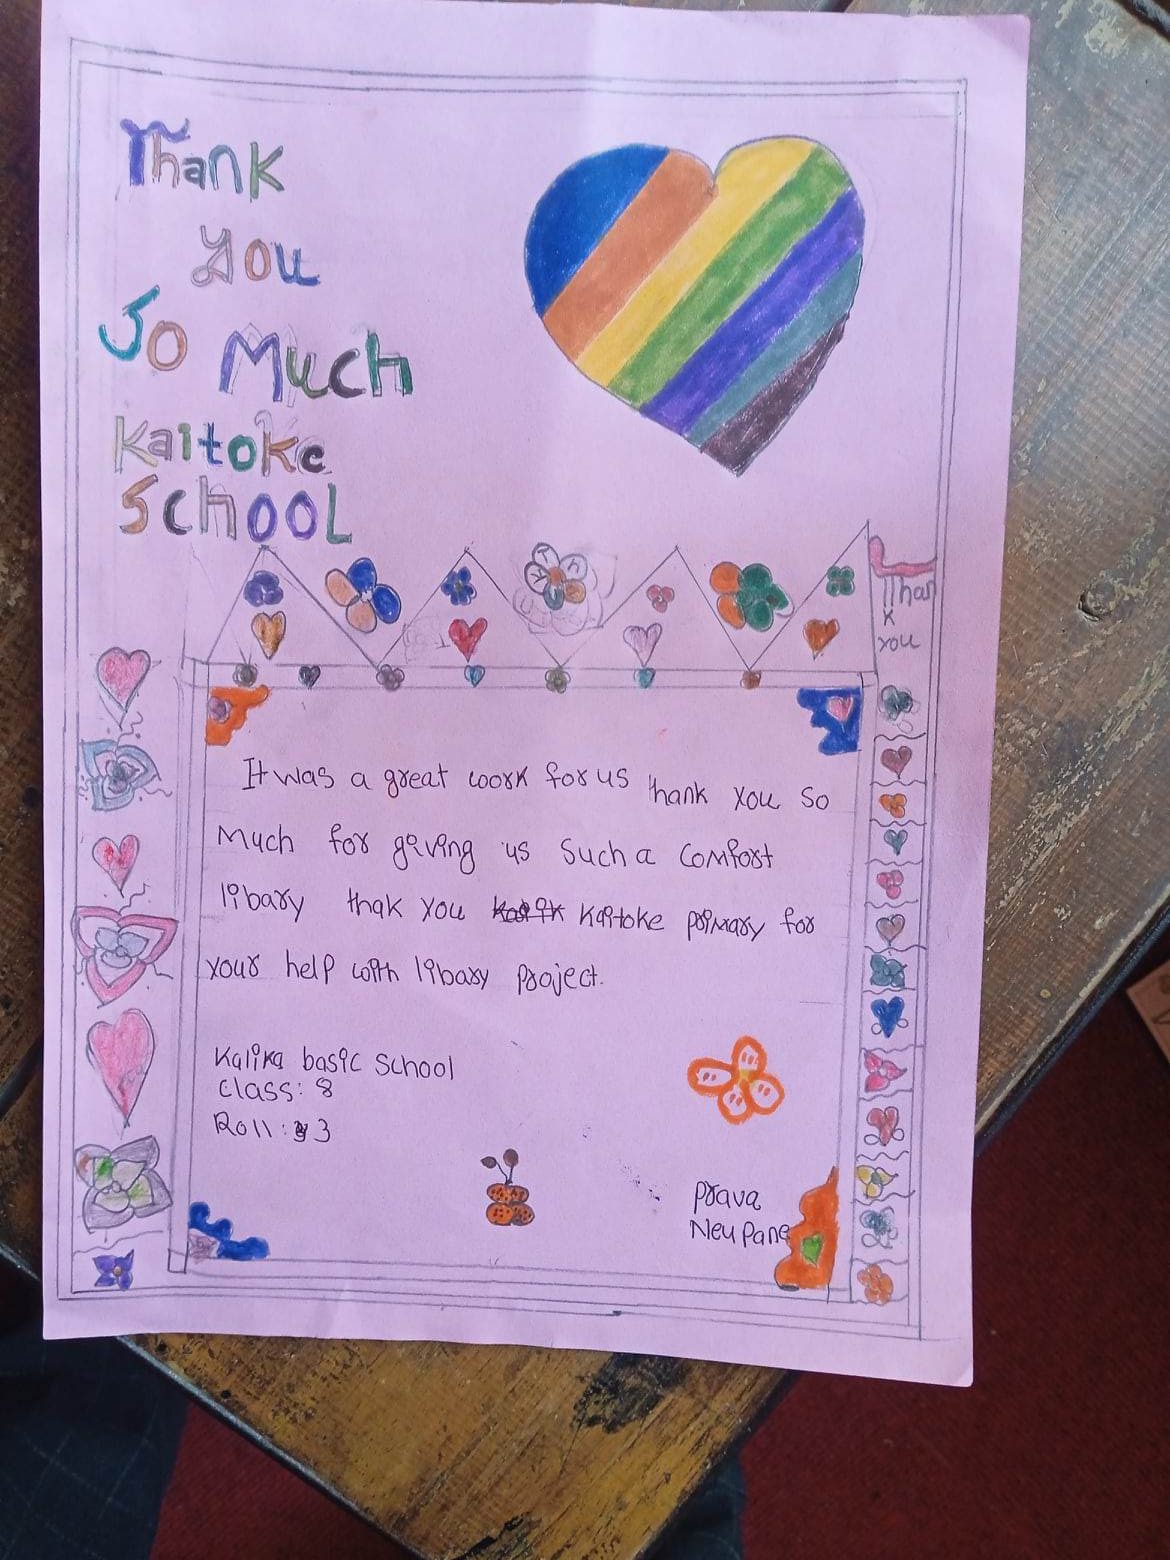 Thank
you
So Much
Kaitoke
School
Than
k
you
It was a great work for us thank you so
Much for giving us such a comfort
libary thak you Kaitoke primary for
your help with libary project.
Kalika basic School
Class: 8
Roll: 3
Prava
Neupane